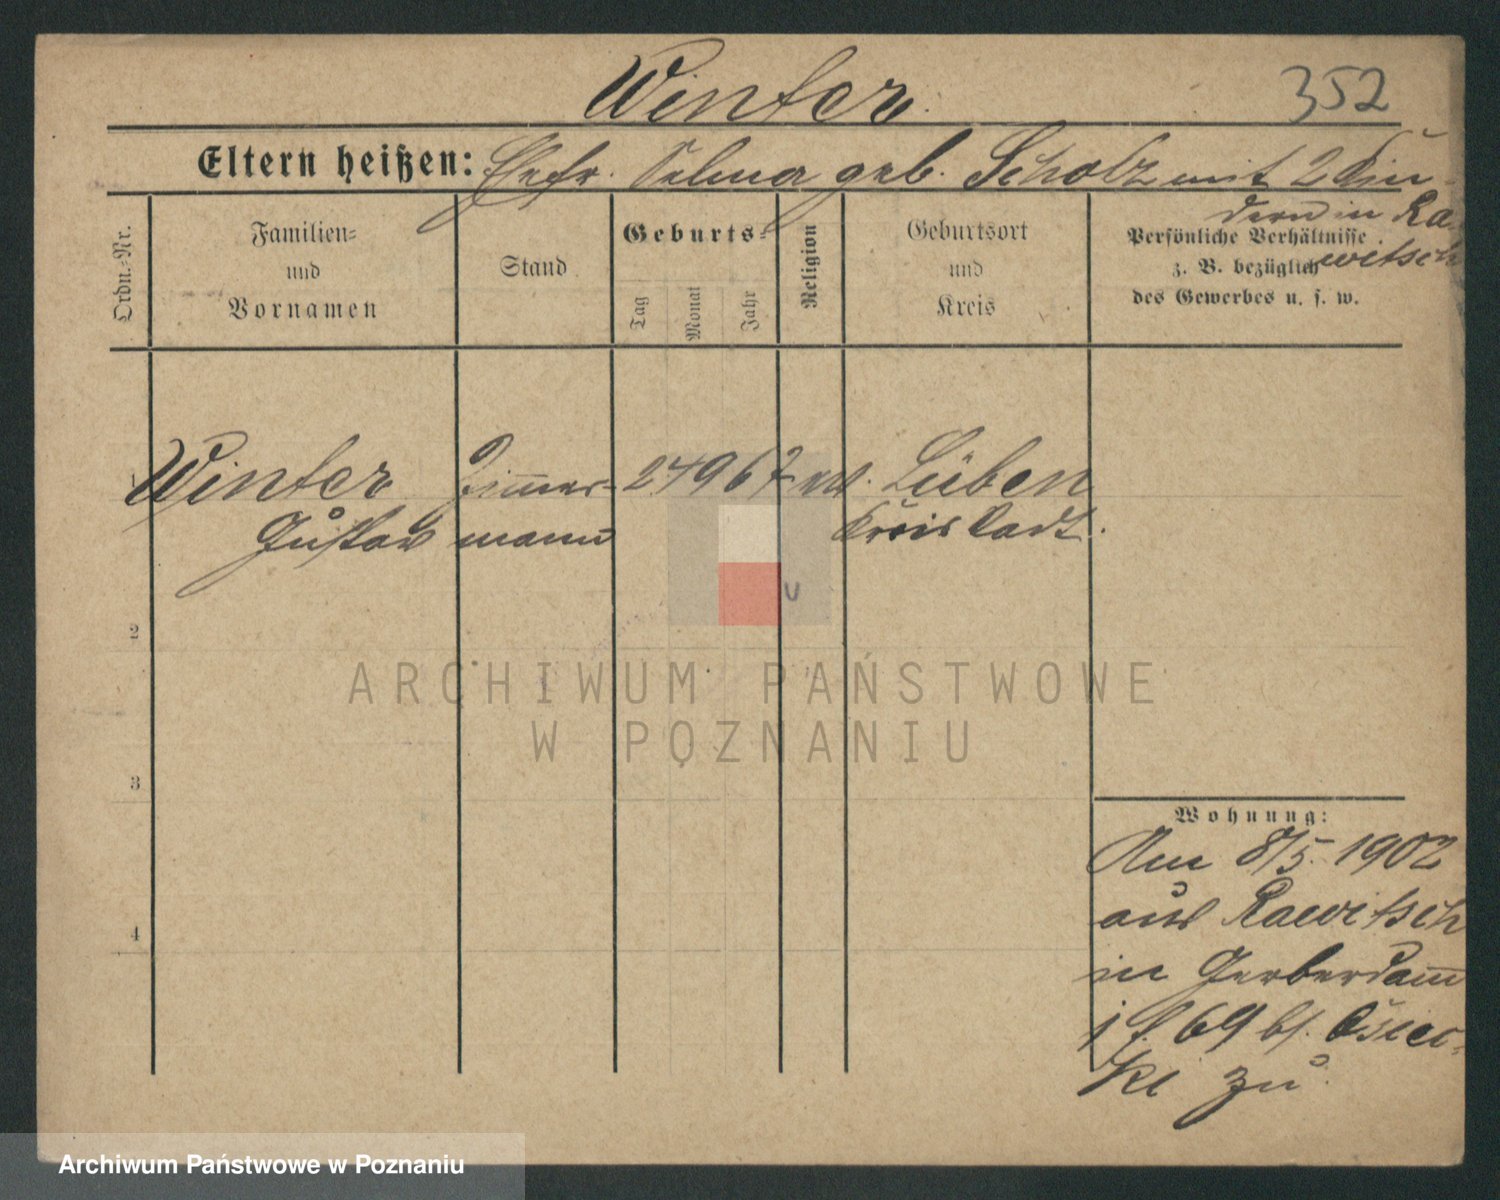 Winter
352
Eltern heißen: Ehefr. Selma geb. Scholz mit 2 Kin-
dern in Ra-
witsch
Ordn.-Nr.
Familien-
und
Vornamen
Stand
Geburts-
Tag
Monat
Jahr
Religion
Geburtsort
und
Kreis
Persönliche Verhältnisse
z. B. bezüglich
des Gewerbes u. s. w.
1
Winter Zimmer- 24 9 67 Lüben
Gustav mann Kreis Stadt.
2
3
4
Wohnung:
Am 8/5. 1902
aus Rawitsch
in Gerberdam̄
69 bei
ki zu
ARCHIWUM PAŃSTWOWE
W POZNANIU
Archiwum Państwowe w Poznaniu